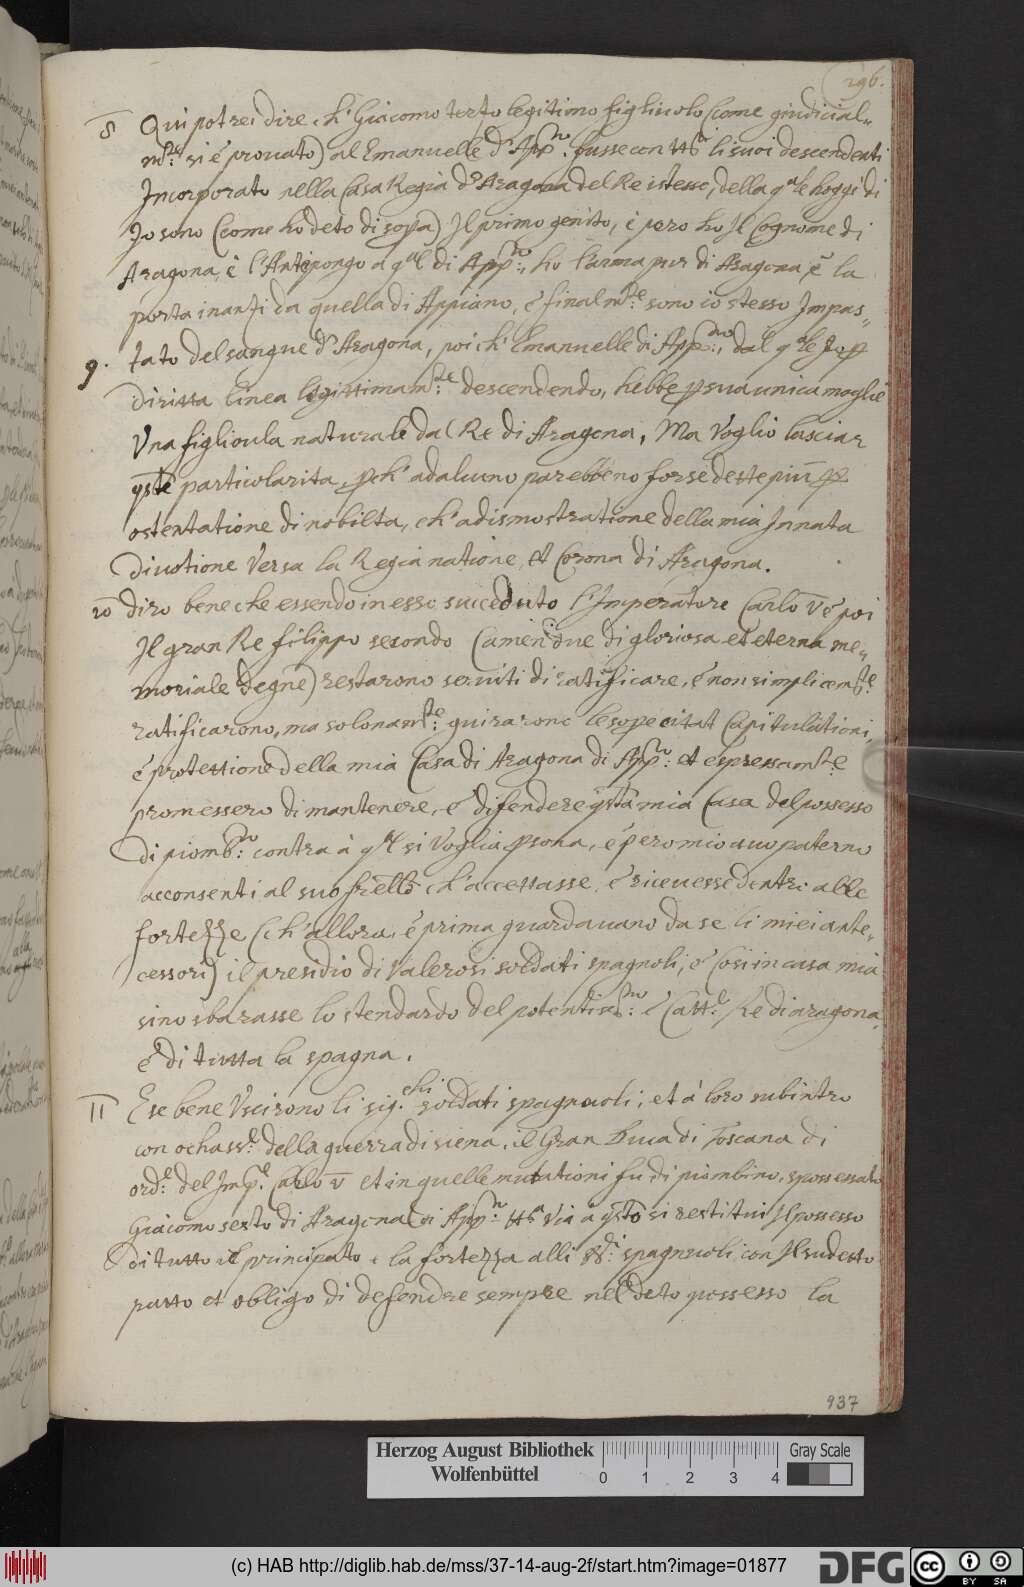 296.
8 Qui potrei dire, ch' Giacomo terzo legitimo figliuolo (come giudicial=
m.te si é prouato) al Emanuelle d'App.no fusse con tt.a li suoi descendenti
Incorporato nella Casa Regia d'Aragona del Re istesso, della q.ale hoggi di
Io sono (come ho deto di sopra) Il primo genito, è pero ho Il Cognome di
Aragona, è l'Antepongo a q.al di App.no, ho l'arma pur di Aragona, é la
porta inanzi da quella di Appiano, é finalm.te sono io stesso Impas=
9. tato del sangue d'Aragona, poi ch' Emanuelle di App.no, dal q.ale Io p
diritta linea legittimam.te descendendo, hebbe p sua unica moglie
Vna figlioula naturale dal Re di Aragona, Ma Voglio lasciar
q̄ste particolarita, pch' ad alcuno parebbeno forse dette piū p
ostentatione di nobilta, ch' a dismostratione della mia Innata
Diuotione Versa la Regia natione, et Corona di Aragona.
10 diro bene che essendo in esso succeduto l'Imperatore Carlo V é poi
Il gran Re filippo secondo (amendue di gloriosa et eterna me=
moriale degne) restarono seruiti di ratificare, é non simplicem.te
ratificarono, ma solonam.te guirarono le sopecitat Capitulationi,
é protettione della mia Casa di Aragona di App.no et espressam.te
promessero di mantenere, é difendere q̄sta mia Casa del possesso
di piomb.no contra à q.al si Voglia psona, é pero mio auo paterno
acconsenti al suo frello ch' accettasse, é riceuesse dentro alle
fortezze (ch' allora, é prima guardauano da se li miei ante=
cessori) il presidio di Valerosi soldati spagnoli, é Cosi in casa mia
sino sbarasse lo stendardo del potentiss.mo é Catt.co Re di aragona,
é di tutta la spagna.
11 E se bene Vscirono li sig.chi soldati spagnuoli, et à loro subintro
con ochass.e della guerra di siena, il Gran Duca di Toscana di
ord.e del Imp.e Carlo V et in quelle mutationi fu di piombino, spossessato
Giacomo sesto di Aragona di App.no tt.a Via à q̄sto si restitui Il possesso
di tutto il principato e la fortezza alli SS.di spagnuoli con Il sudetto
patto et obligo di defendre sempre nel deto possesso la
937
Herzog August Bibliothek
Wolfenbüttel
0 1 2 3 4
Gray Scale
(c) HAB http://diglib.hab.de/mss/37-14-aug-2f/start.htm?image=01877
DFG
cc BY SA